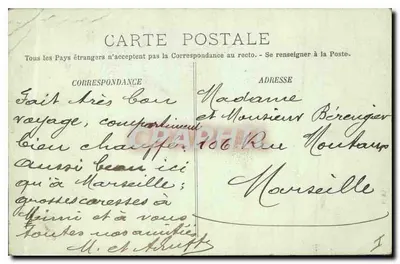 CARTE POSTALE
Tous les Pays étrangers n'acceptent pas la Correspondance au recto. - Se renseigner à la Poste.
CORRESPONDANCE
Fait très bon
voyage, compartiment
bien chauffé,
aussi bon ici
qu'à Marseille;
grosses caresses à
Mimi et à vous
toutes nos amitiés
M. et
ADRESSE
Madame
et Monsieur Bérengier
106 Rue
Marseille